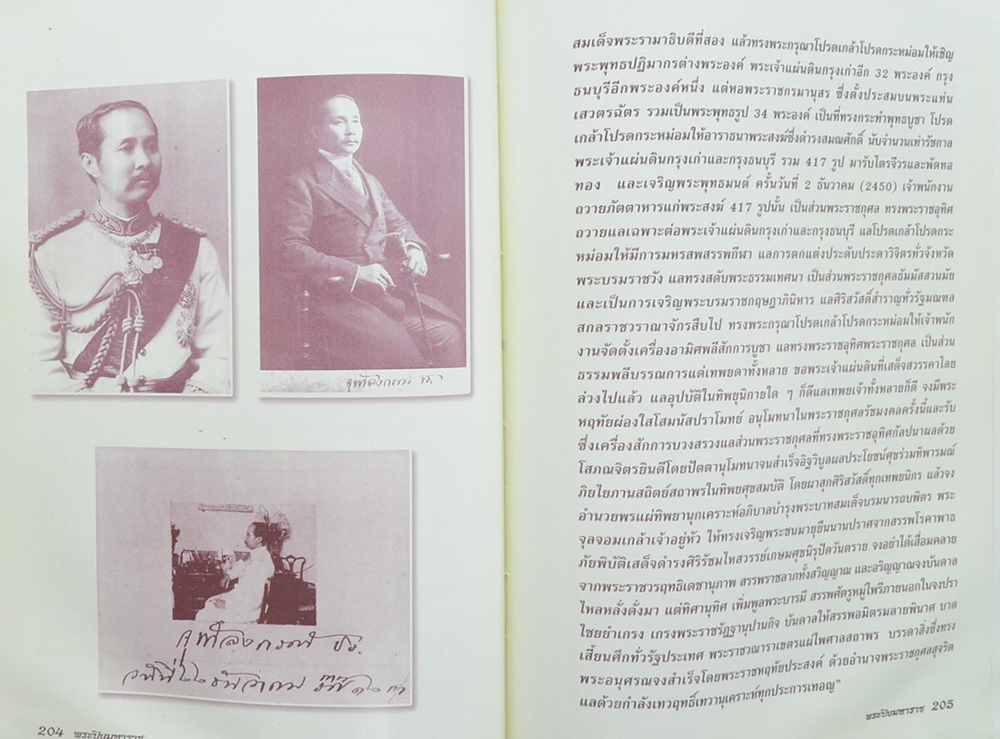 จุฬาลงกรณ์ ปร
จุฬาลงกรณ์ ปร.
204 พระปิยมหาราช
สมเด็จพระรามาธิบดีที่สอง แล้วทรงพระกรุณาโปรดเกล้าโปรดกระหม่อมให้เชิญ
พระพุทธปฏิมากรต่างพระองค์ พระเจ้าแผ่นดินกรุงเก่าอีก 32 พระองค์ กรุง
ธนบุรีอีกพระองค์หนึ่ง แต่หอพระราชกรมานุสร ซึ่งตั้งประสมบนพระแท่น
เสวตรฉัตร รวมเป็นพระพุทธรูป 34 พระองค์ เป็นที่ทรงกระทำพุทธบูชา โปรด
เกล้าโปรดกระหม่อมให้อาราธนาพระสงฆ์ซึ่งดำรงสมณศักดิ์ นับจำนวนเท่ารัชกาล
พระเจ้าแผ่นดินกรุงเก่าและกรุงธนบุรี รวม 417 รูป มารับไตรจีวรและพัดทอ
ทอง และเจริญพระพุทธมนต์ ครั้นวันที่ 2 ธันวาคม (2450) เจ้าพนักงาน
ถวายภัตตาหารแก่พระสงฆ์ 417 รูปนั้น เป็นส่วนพระราชกุศล ทรงพระราชอุทิศ
ถวายแลเฉพาะต่อพระเจ้าแผ่นดินกรุงเก่าและกรุงธนบุรี แลโปรดเกล้าโปรดกระ
หม่อมให้มีการมหรสพสรรพกีฬา แลการตกแต่งประดับประดาวิจิตรทั่วจังหวัด
พระบรมราชวัง แลทรงสดับพระธรรมเทศนา เป็นส่วนพระราชกุศลธัมมัสสวนมัย
และเป็นการเจริญพระบรมราชกฤษฎาภินิหาร แลศิริสวัสดิ์สำราญทั่วรัฐมณฑล
สกลราชวราณาจักรสืบไป ทรงพระกรุณาโปรดเกล้าโปรดกระหม่อมให้เจ้าพนัก
งานจัดตั้งเครื่องอามิศพลีสักการบูชา แลทรงพระราชอุทิศพระราชกุศล เป็นส่วน
ธรรมพลีบรรณการแด่เทพยดาทั้งหลาย ขอพระเจ้าแผ่นดินที่เสด็จสวรรคาไลย
ล่วงไปแล้ว แลอุปบัติในทิพยุนิกายใด ๆ ก็ดีแลเทพยเจ้าทั้งหลายก็ดี จงมีพระ
หฤทัยผ่องใสโสมนัสปราโมทย์ อนุโมทนาในพระราชกุศลรัชมงคลครั้งนี้และรับ
ซึ่งเครื่องสักการบวงสรวงแลส่วนพระราชกุศลที่ทรงพระราชอุทิศกัลปนาผลด้วย
โสภณจิตรยินดีโดยปัตตานุโมทนาจนสำเร็จอิฐวิบูลผลประโยชน์ศุขร่วมทิพารมณ์
ภิยไยภานสถิตย์สถาพรในทิพยศุขสมบัติ โดยผาสุกศิริสวัสดิ์ทุกเทพยนิกร แล้วจง
อำนวยพรแผ่ทิพยานุกเคราะห์อภิบาลบำรุงพระบาทสมเด็จบรมนารถบพิตร พระ
จุลจอมเกล้าเจ้าอยู่หัว ให้ทรงเจริญพระชนมายุยืนนานปราศจากสรรพโรคาพาธ
ภัยพิบัติเสด็จดำรงศิริรัชมไหสวรรย์เกษมศุขนิรุปัดวันตราย จงอย่าได้เสื่อมคลาย
จากพระราชวรฤทธิเดชานุภาพ สรรพราชลาภทั้งสวิญญาณ และอริญญาณจงบันดาล
ไหลหลั่งดั่งมา แต่ทิศานุทิศ เพิ่มพูลพระบารมี สรรพศัตรูหมู่ไพรีภายนอกในจงปรา
ไชยยำเกรง เกรงพระราชรัฏฐานุปานกิจ บันดาลให้สรรพอมิตรมลายพินาศ บาด
เสี้ยนศึกทั่วรัฐประเทศ พระราชาณาราเขตรแผ่ไพศาลสถาพร บรรดาสิ่งซึ่งทรง
พระอนุศรณจงสำเร็จโดยพระราชหฤทัยประสงค์ ด้วยอำนาจพระราชกุศลสุจริต
แลด้วยกำลังเทวฤทธิ์เทวานุเคราะห์ทุกประการเทอญ”
พระปิยมหาราช 205